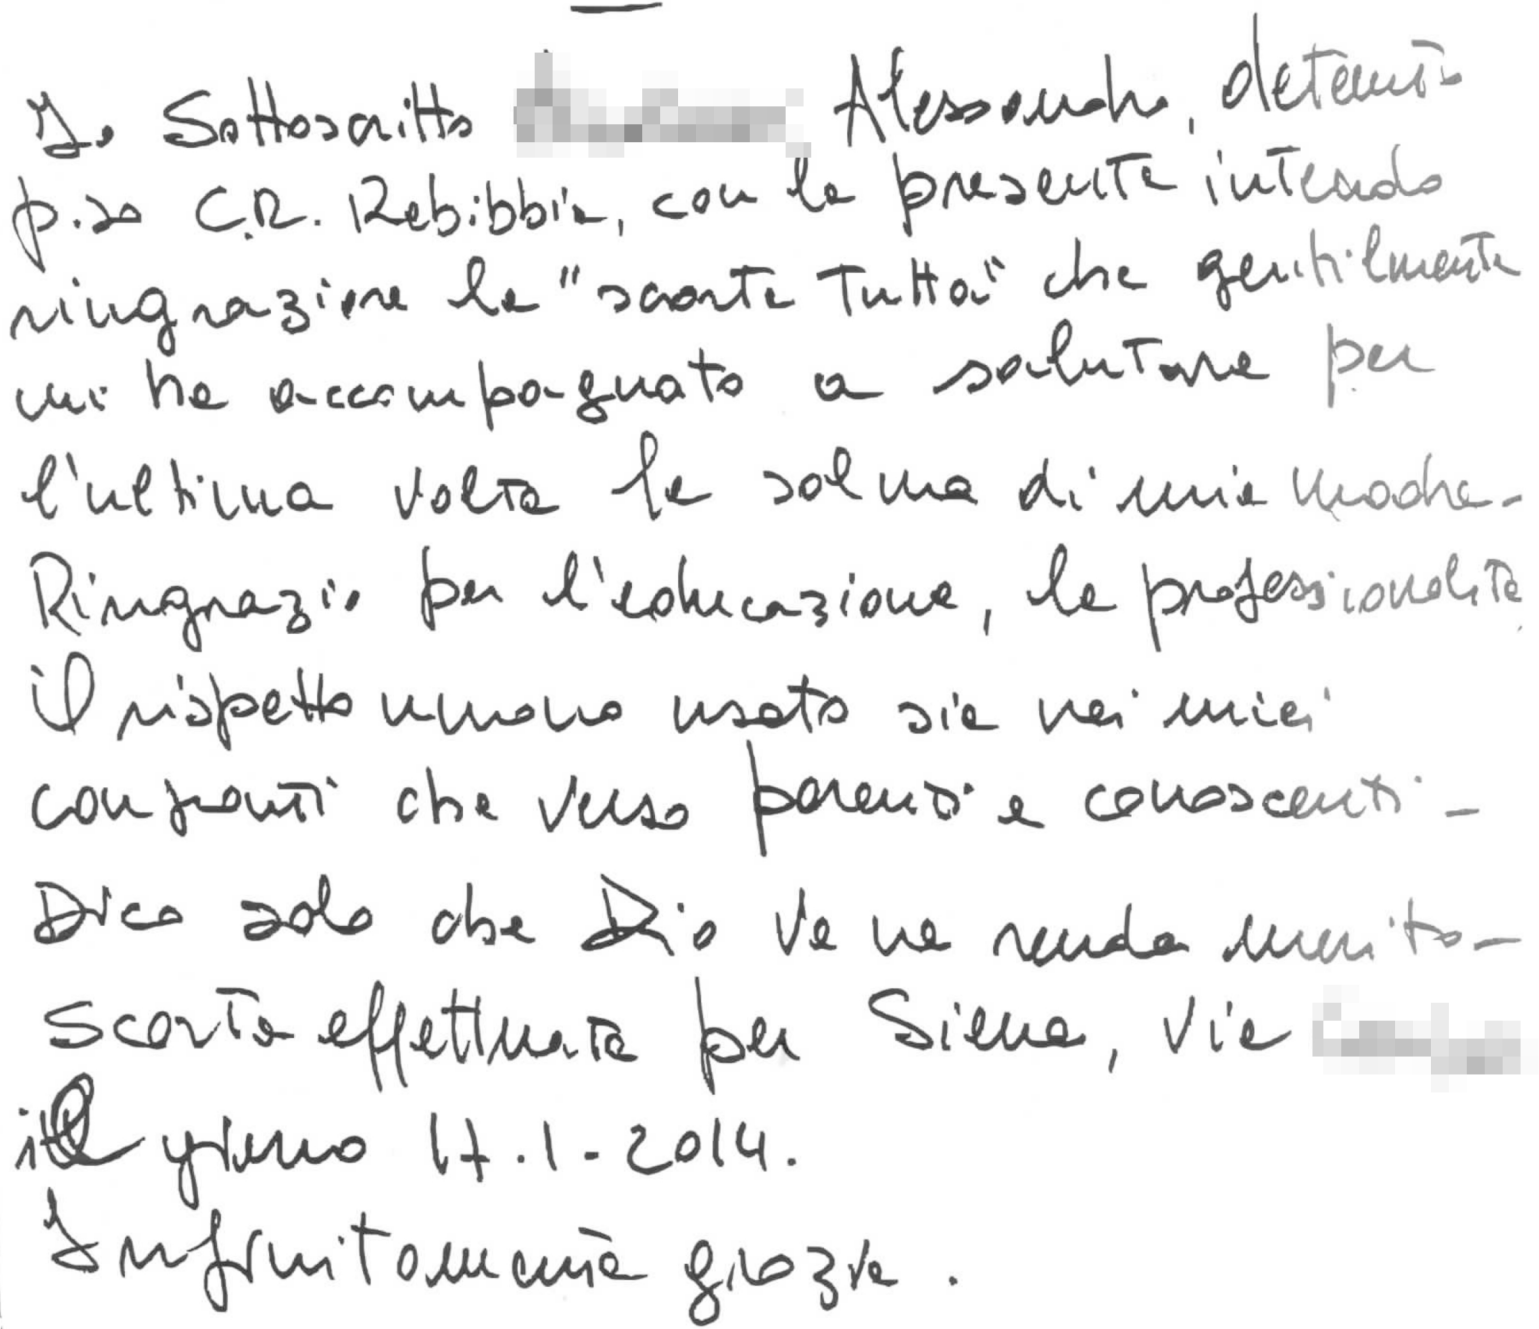 Io Sottoscritto Alessandro, detenuto
p.so C.R. Rebibbia, con la presente intendo
ringraziare la "scorta Tutta" che gentilmente
mi ha accompagnato a salutare per
l'ultima volta la salma di mia madre -
Ringrazio per l'educazione, la professionalità
il rispetto umano usato sia nei miei
confronti che verso parenti e conoscenti -
Dico solo che Dio Ve ne renda merito -
Scorta effettuata per Siena, Via
il giorno 17.1-2014.
Infinitamente grazie.